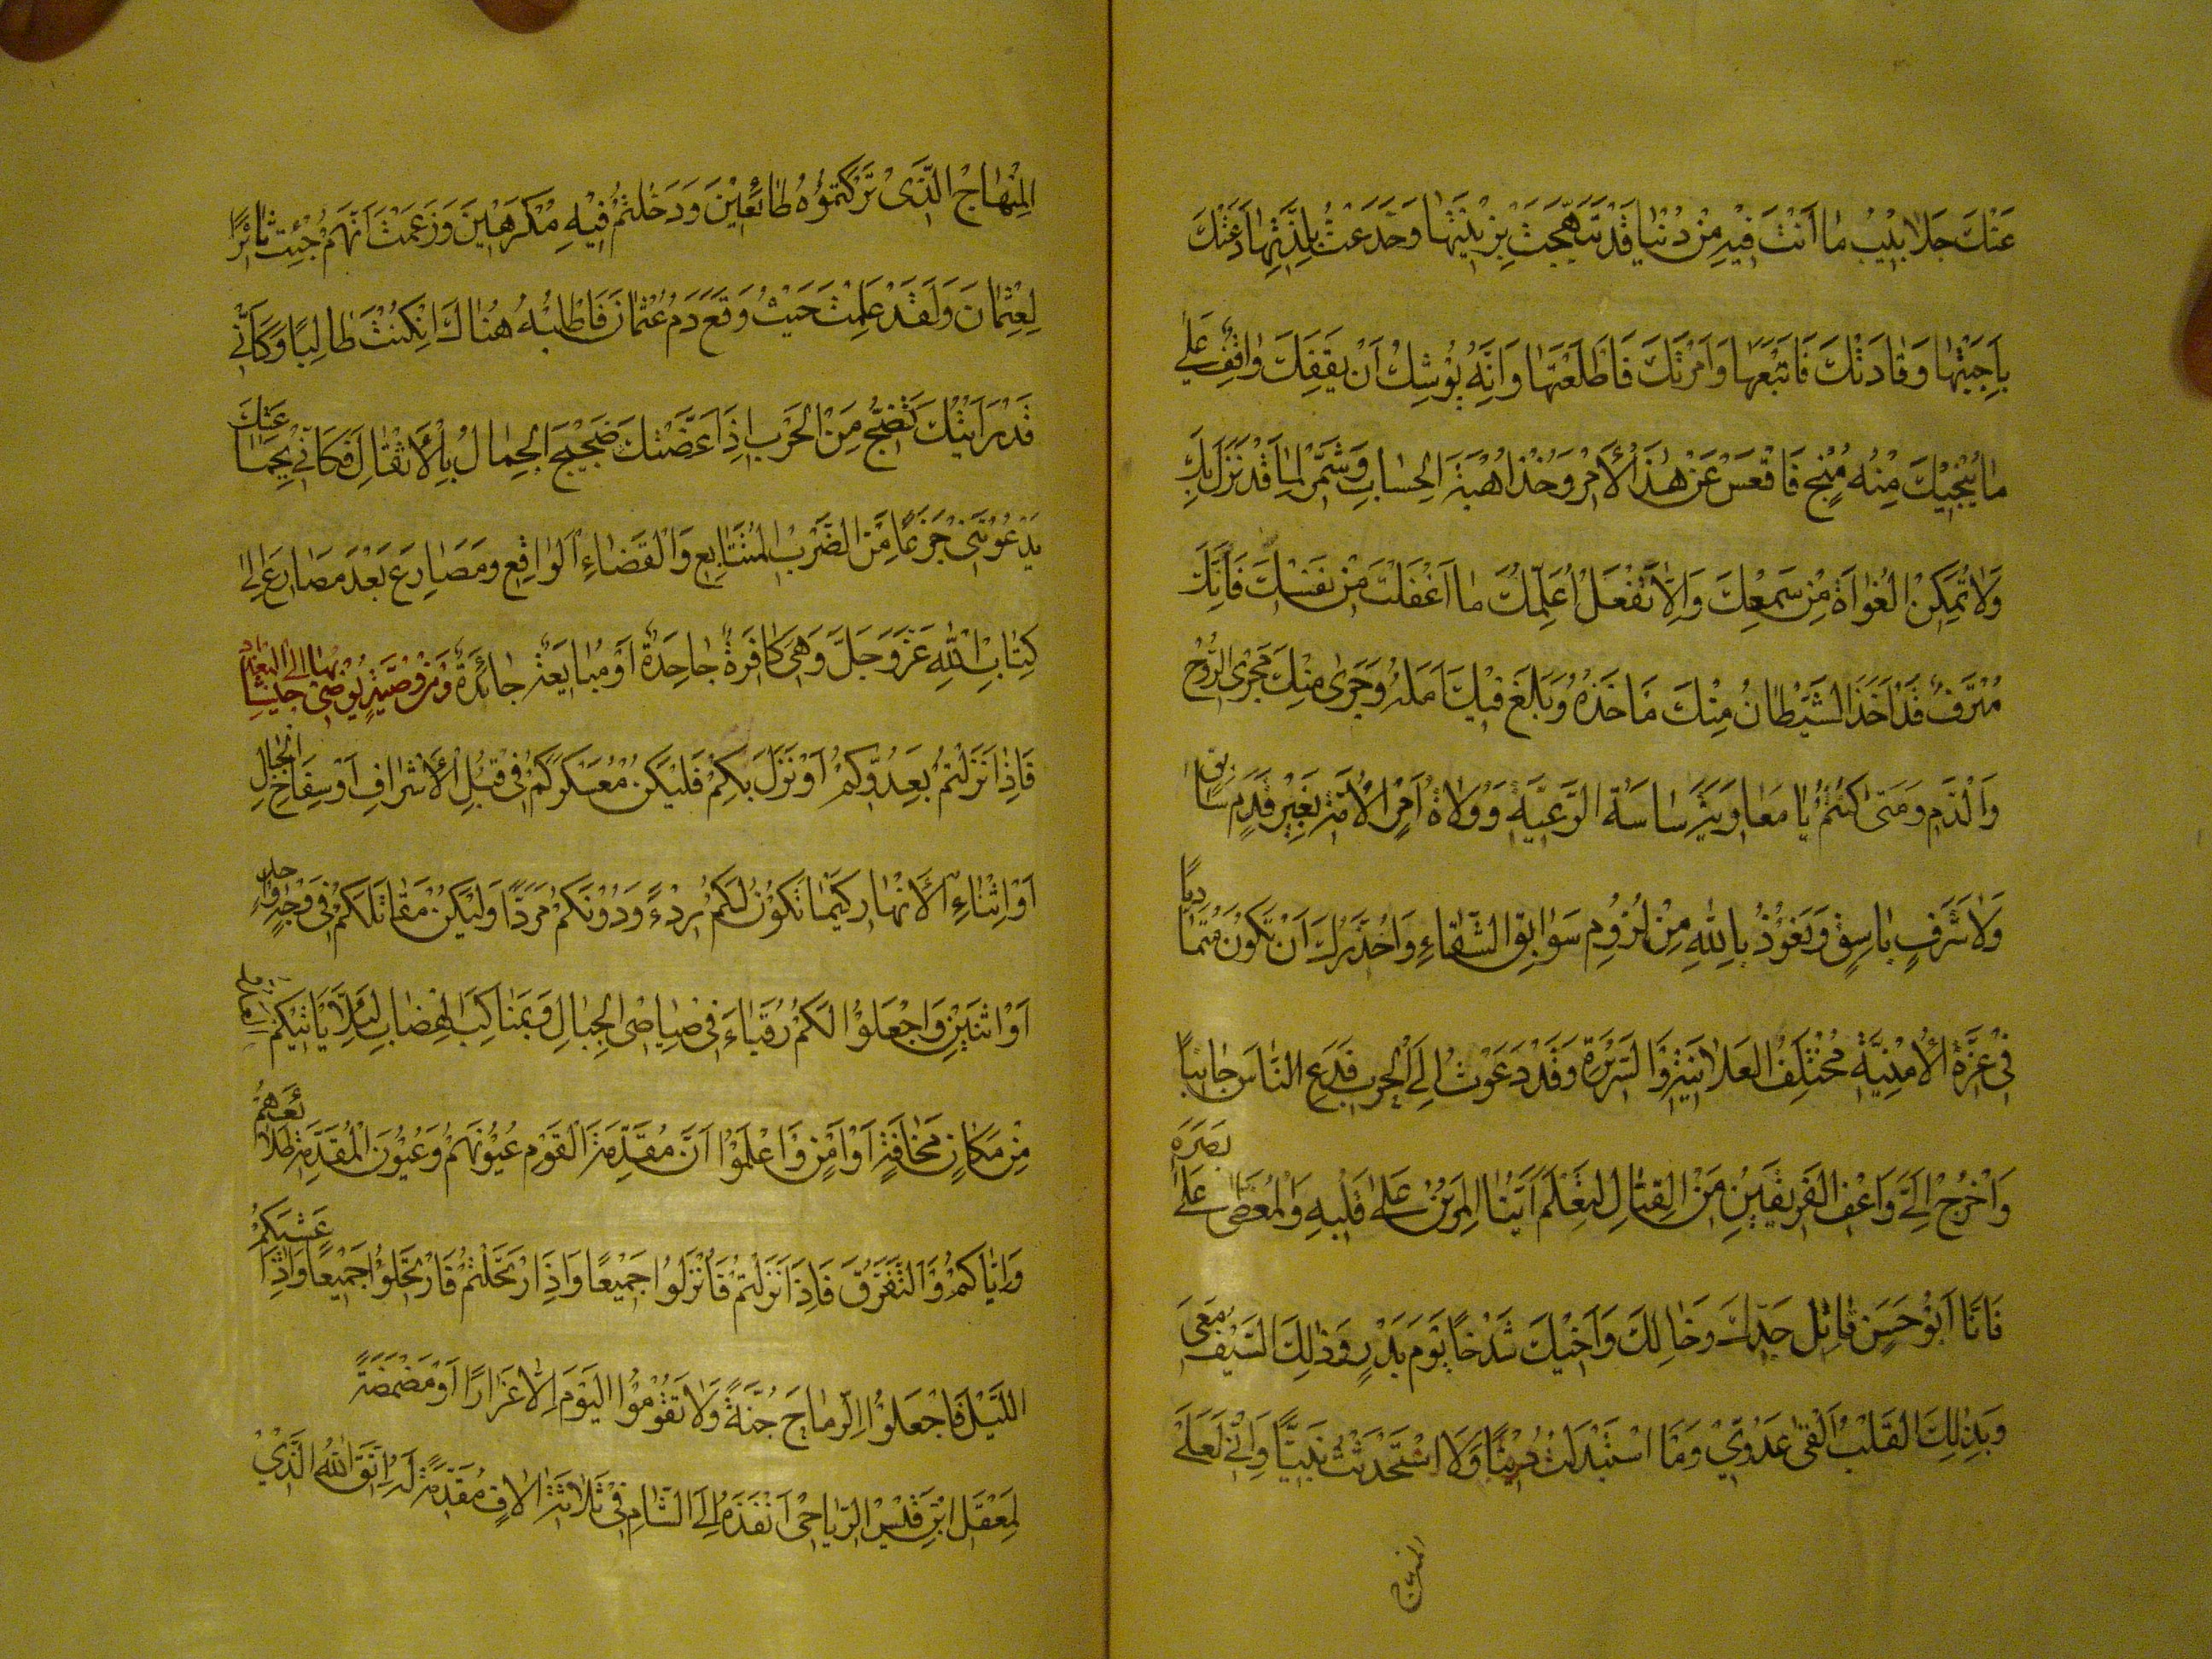 عَنْكَ جَلَابِيْبُ مٰا اَنْتَ فِيْهِ مِنْ دُنْيٰا قَدْ تَبَهَّجَتْ بِزِيْنَتِهٰا وَخَدَعَتْ بِلَذَّتِهٰا دَعَتْكَ
فَاَجَبْتَهٰا وَقٰادَتْكَ فَاتَّبَعْتَهٰا وَاَمَرَتْكَ فَاَطَعْتَهٰا وَاِنَّهُ يُوْشِكُ اَنْ يَقِفَكَ وٰاقِفٌ عَلٰى
مٰا يُنْجِيْكَ مِنْهُ مُنْجٍ فَاقْعَسْ عَنْ هٰذَا الْأَمْرِ وَخُذْ اُهْبَةَ الْحِسٰابِ وَشَمِّرْ لِمٰا قَدْ نَزَلَ بِكَ
وَلٰا تُمَكِّنِ الْغُوٰاةَ مِنْ سَمْعِكَ وَاِلَّا تَفْعَلْ اُعْلِمْكَ مٰا اَغْفَلْتَ مِنْ نَفْسِكَ فَاِنَّكَ
مُتْرَفٌ قَدْ اَخَذَ الشَّيْطٰانُ مِنْكَ مَاْخَذَهُ وَبَلَغَ فِيْكَ اَمَلَهُ وَجَرٰى مِنْكَ مَجْرَى الرُّوْحِ
وَالدَّمِ وَمَتٰى كُنْتُمْ يٰا مَعٰاوِيَةُ سٰاسَةَ الرَّعِيَّةِ وَوُلٰاةَ اَمْرِ الْاُمَّةِ بِغَيْرِ قَدَمٍ سٰابِقٍ
وَلٰا شَرَفٍ بٰاسِقٍ وَنَعُوْذُ بِاللهِ مِنْ لُزُوْمِ سَوٰابِقِ الشَّقٰاءِ وَاُحَذِّرُكَ اَنْ تَكُوْنَ مُتَمٰادِيًا
فِيْ غِرَّةِ الْاُمْنِيَّةِ مُخْتَلِفَ الْعَلٰانِيَةِ وَالسَّرِيْرَةِ وَقَدْ دَعَوْتَ اِلَى الْحَرْبِ فَدَعِ النّٰاسَ جٰانِبًا
وَاخْرُجْ اِلَيَّ وَاَعْفِ الْفَرِيْقَيْنِ مِنَ الْقِتٰالِ لِيُعْلَمَ اَيُّنَا الْمَرِيْنُ عَلٰى قَلْبِهِ وَالْمُغَطّٰى عَلٰى بَصَرِهِ
فَاَنَا اَبُوْ حَسَنٍ قٰاتِلُ جَدِّكَ وَخٰالِكَ وَاَخِيْكَ شَدْخًا يَوْمَ بَدْرٍ وَذٰلِكَ السَّيْفُ مَعِيَ
وَبِذٰلِكَ الْقَلْبِ اَلْقٰى عَدُوِّيْ وَمَا اسْتَبْدَلْتُ دِيْنًا وَلَا اسْتَحْدَثْتُ نَبِيًّا وَاِنِّيْ لَعَلَى
المنهاج
الْمِنْهٰاجِ الَّذِيْ تَرَكْتُمُوْهُ طٰائِعِيْنَ وَدَخَلْتُمْ فِيْهِ مُكْرَهِيْنَ وَزَعَمْتَ اَنَّهُمْ جِئْتَ ثٰائِرًا
لِعُثْمٰانَ وَلَقَدْ عَلِمْتَ حَيْثُ وَقَعَ دَمُ عُثْمٰانَ فَاطْلُبْهُ هُنٰاكَ اِنْ كُنْتَ طٰالِبًا وَكَاَنِّيْ
قَدْ رَاَيْتُكَ تَضِجُّ مِنَ الْحَرْبِ اِذَا عَضَّتْكَ ضَجِيْجَ الْجِمٰالِ بِالْأَثْقٰالِ فَكَاَنِّيْ بِجَمٰاعَتِكَ
يَدْعُوْنَنِيْ جَزَعًا مِنَ الضَّرْبِ الْمُتَتٰابِعِ وَالْقَضٰاءِ الْوٰاقِعِ وَمَصٰارِعَ بَعْدَ مَصٰارِعَ اِلٰى
كِتٰابِ اللهِ عَزَّ وَجَلَّ وَهِيَ كٰافِرَةٌ جٰاحِدَةٌ اَوْ مُبٰايِعَةٌ حٰائِدَةٌ وَمِنْ وَصِيَّةٍ يُوْصِيْ جَيْشًا بِهٰا اِلَى الْبِغْدٰاد
فَاِذٰا نَزَلْتُمْ بِعَدُوِّكُمْ اَوْ نَزَلَ بِكُمْ فَلْيَكُنْ مُعَسْكَرُكُمْ فِيْ قُبُلِ الْأَشْرٰافِ اَوْ سِفَاحِ الْجِبٰالِ
اَوْ اَثْنٰاءِ الْأَنْهٰارِ كَيْمٰا تَكُوْنَ لَكُمْ رِدْءً وَدُوْنَكُمْ مَرَدًّا وَلْيَكُنْ مُقٰاتَلَكُمْ فِيْ وَجْهٍ وٰاحِدٍ
اَوِ اثْنَيْنِ وَاجْعَلُوْا لَكُمْ رُقَبٰاءَ فِيْ صَيٰاصِى الْجِبٰالِ وَبِمَنٰاكِبِ الْهِضٰابِ لِئَلَّا يَاْتِيَكُمُ
مِنْ مَكٰانِ مَخٰافَةٍ اَوْ اَمْنٍ وَاعْلَمُوْا اَنَّ مُقَدِّمَةَ الْقَوْمِ عُيُوْنُهُمْ وَعُيُوْنَ الْمُقَدِّمَةِ طَلٰائِعُهُمْ
وَاِيّٰاكُمْ وَالتَّفَرُّقَ فَاِذَا نَزَلْتُمْ فَانْزِلُوْا جَمِيْعًا وَاِذَا ارْتَحَلْتُمْ فَارْتَحِلُوْا جَمِيْعًا وَاِذٰا غَشِيَكُمُ
اللَّيْلُ فَاجْعَلُوا الرِّمٰاحَ جُنَّةً وَلٰا تَقُوْمُوْا الْيَوْمَ اِلّٰا غَرَارًا اَوْ مَضْمَضَةً
لِمَعْقَلِ ابْنِ قَيْسِ الرِّيٰاحِيْ اَنْفَذَهُ اِلَى الشَّامِ فِيْ ثَلٰاثَةِ اٰلٰافٍ مُقَدِّمَةً لَهُ اِتَّقِ اللهَ الَّذِيْ